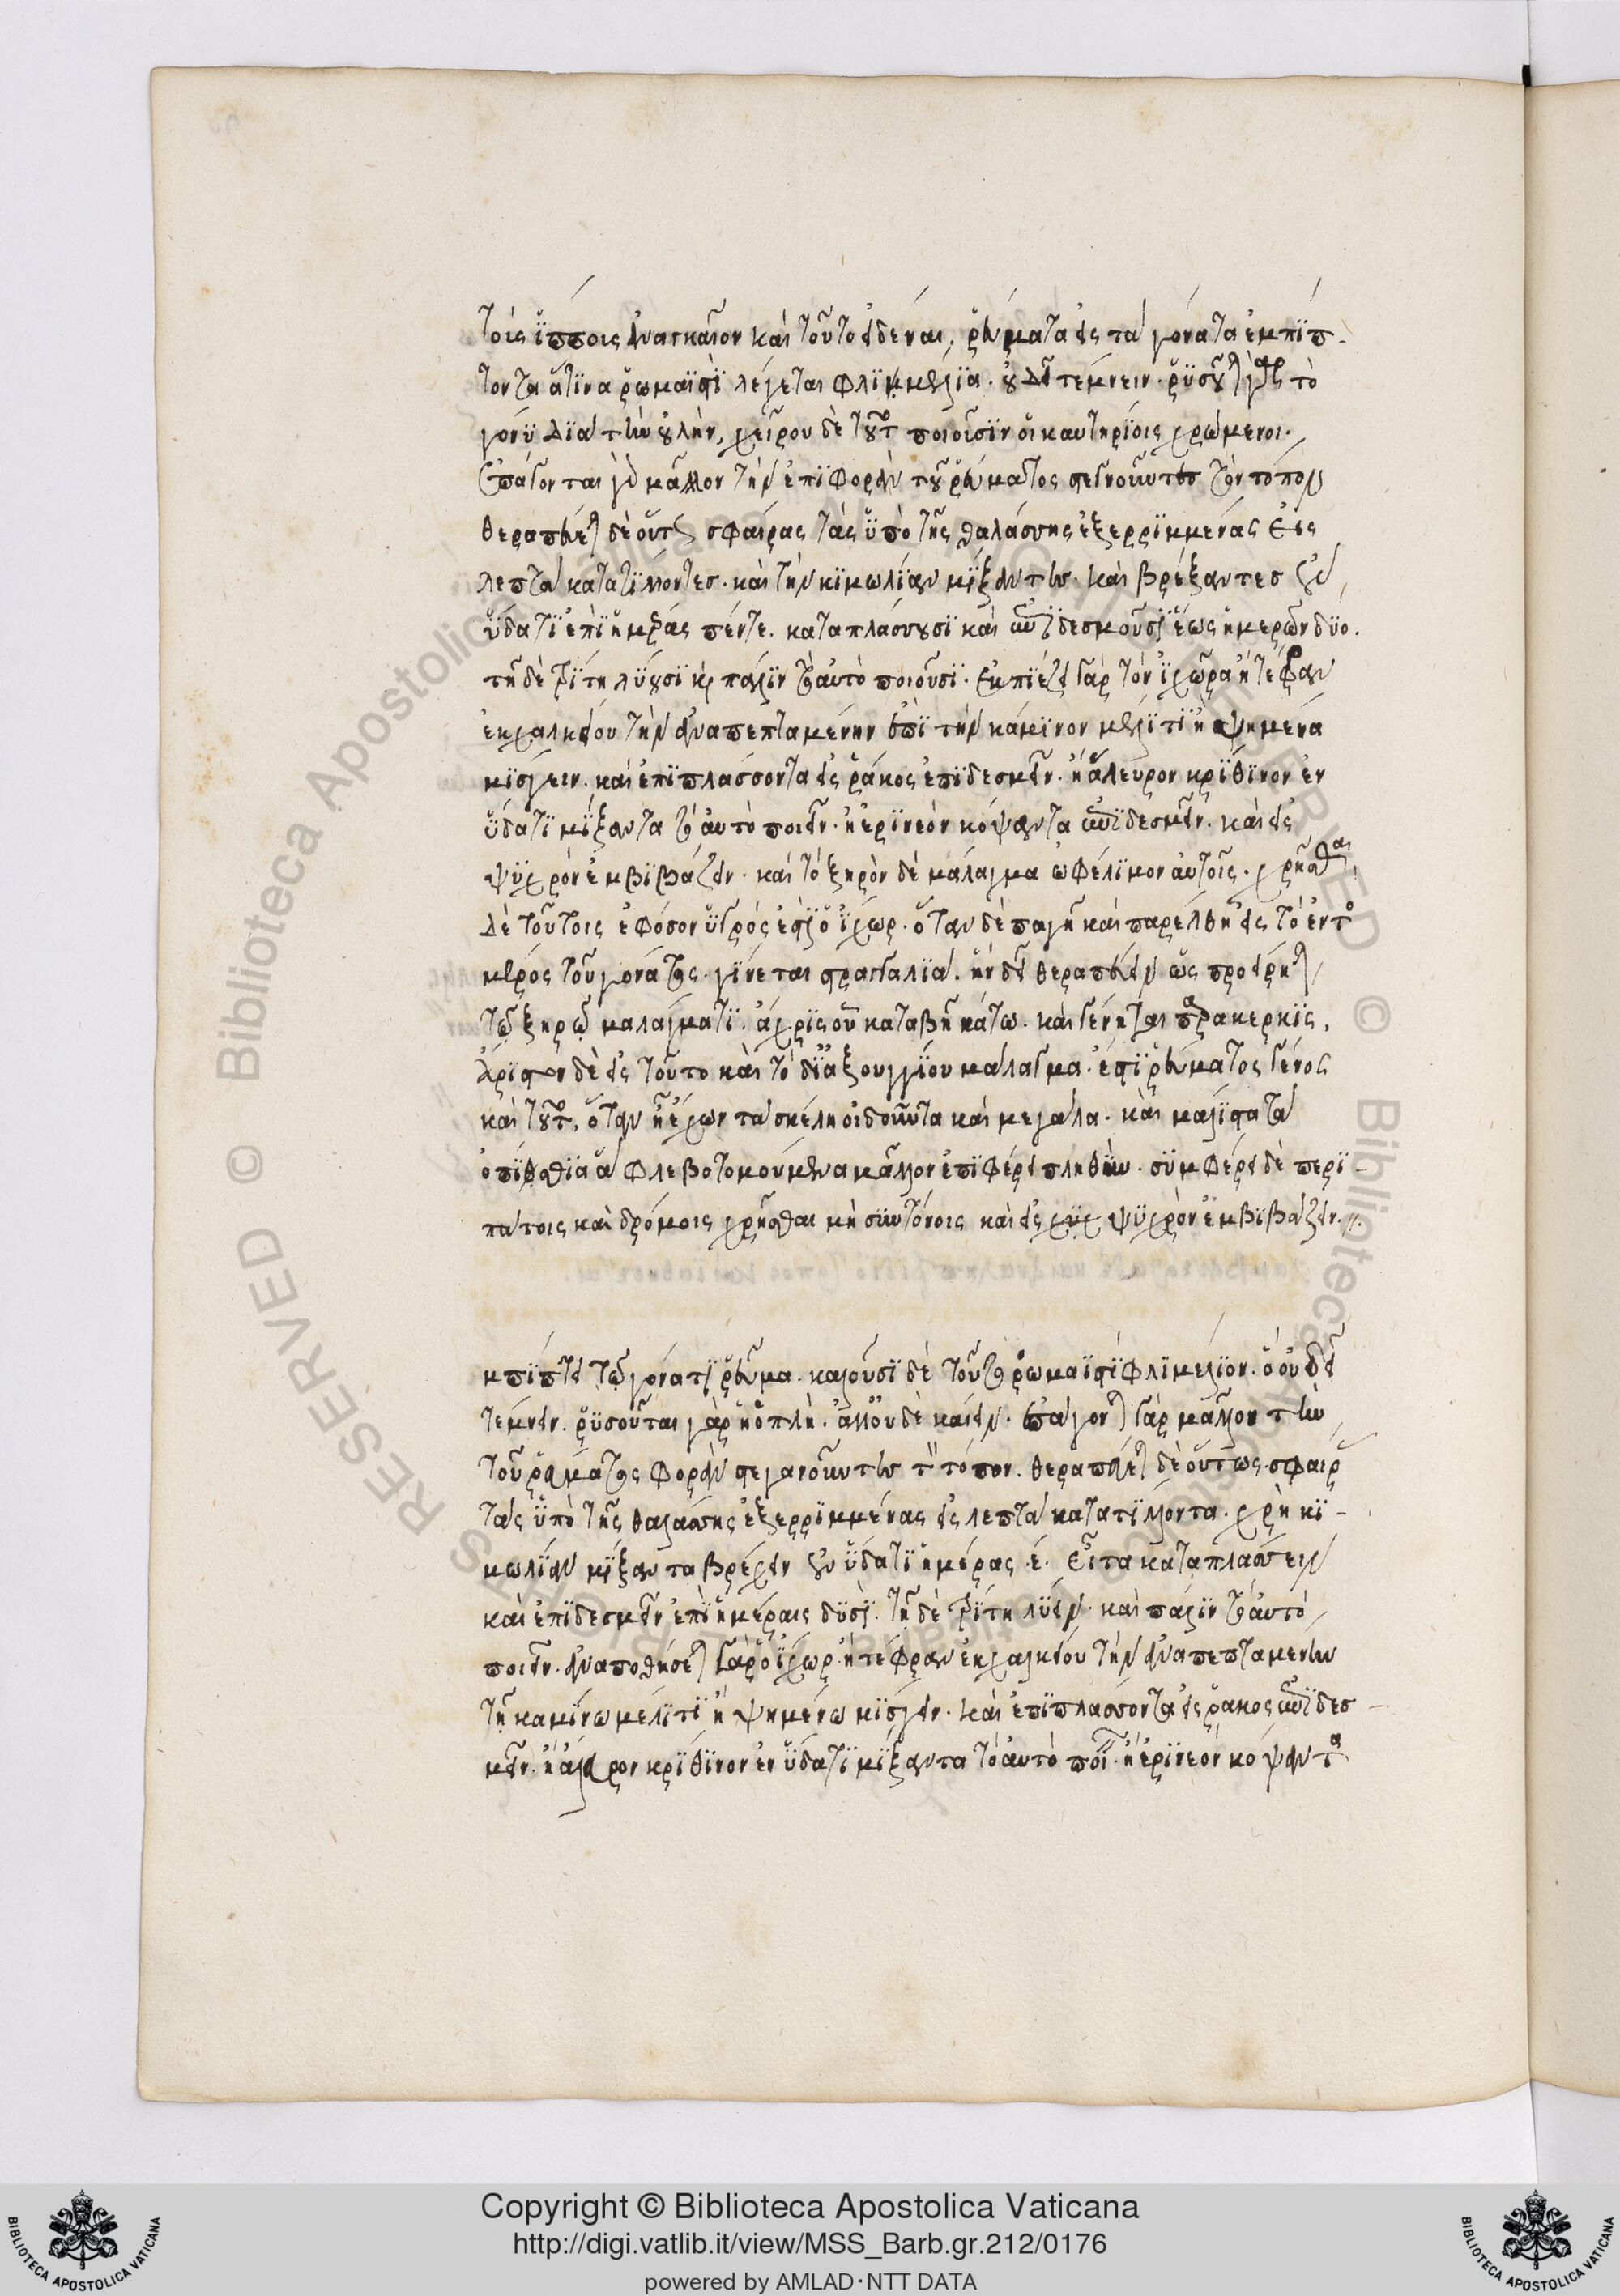 τοῖς ἵπποις ἀναγκαῖον καὶ τοῦτο εἰδέναι, ῥεύματα εἰς τὰ γόνατα ἐμπίπ-
τοντα ἅτινα ῥωμαϊστὶ λέγεται φλιμμέλια. οὐ δεῖ τέμνειν. ῥυσοῦται γὰρ τὸ
γόνυ διὰ τὴν οὐλήν, χεῖρον δὲ τοῦτο ποιοῦσιν οἱ καυτηρίοις χρώμενοι.
ἐπάγονται γὰρ μᾶλλον τὴν ἐπιφορὰν τοῦ ῥεύματος στεγνοῦντες τὸν τόπον
θεραπεύεται δὲ οὕτως σφαίρας τὰς ὑπὸ τῆς θαλάσσης ἐξερριμμένας εἰς
λεπτὰ κατατίλλοντες. καὶ τὴν κιμωλίαν μίξαντες. καὶ βρέξαντες ἐν
ὕδατι ἐπὶ ἡμέρας πέντε. καταπλάσσουσι καὶ ἐπιδεσμοῦσι ἕως ἡμερῶν δύο.
τῇ δὲ τρίτῃ λύουσι καὶ πάλιν τὸ αὐτὸ ποιοῦσι. ἐκπιέζει γὰρ τὸν ἰχῶρα ἢ τέφραν
ἐκ χαλκείου τὴν ἀναπεπταμένην ἐπὶ τὴν κάμινον μέλιτι ἡψημένα
μίσγειν. καὶ ἐπιπλάσσοντα εἰς ῥάκος ἐπιδεσμεῖν. ἢ ἄλευρον κρίθινον ἐν
ὕδατι μίξαντα τὸ αὐτὸ ποιεῖν. ἢ ἐρινεὸν κόψαντα ἐπιδεσμεῖν. καὶ εἰς
ψυχρὸν ἐμβιβάζειν. καὶ τὸ ξηρὸν δὲ μάλαγμα ὠφέλιμον αὐτοῖς. χρῆσθαι
δὲ τούτοις ἐφόσον ὑγρός ἐστι ὁ ἰχώρ. ὅταν δὲ παγῇ καὶ παρέλθῃ εἰς τὸ ἐντὸ
μέρος τοῦ γόνατος. γίνεται στραγγαλιά. ἣν δεῖ θεραπεύειν ὡς προείρηται
τῷ ξηρῷ μαλάγματι. ἄχρις οὗ καταβῇ κάτω. καὶ γένηται παρακερκίς.
ἄριστον δὲ εἰς τοῦτο καὶ τὸ δι' ἀξουγγίου μάλαγμα. ἐστὶ ῥεύματος γένος
καὶ τοῦτο, ὅταν ᾖ ἔχων τὰ σκέλη οἰδοῦντα καὶ μεγάλα. καὶ μάλιστα τὰ
ὀπίσθια ἃ φλεβοτομούμενα μᾶλλον ἐπιφέρει πληθὺν. συμφέρει δὲ περι-
πάτοις καὶ δρόμοις χρῆσθαι μὴ συντόνοις καὶ εἰς χυχ ψυχρὸν ἐμβιβάζειν.
μπίπτει τῷ γόνατι ῥεῦμα. καλοῦσι δὲ τοῦτο ῥωμαϊστὶ φλιμέλιον. ὃ οὐ δεῖ
τέμνειν. ῥυσοῦται γὰρ ἡ ὁπλή. ἀλλ' οὐδὲ καίειν. ἐπάγονται γὰρ μᾶλλον τὴν
τοῦ ῥεύματος φορὰν στεγανοῦντες τὸν τόπον. θεραπεύεται δὲ οὕτως. σφαίρ
τὰς ὑπὸ τῆς θαλάσσης ἐξερριμμένας εἰς λεπτὰ κατατίλλοντα. χρὴ κι-
μωλίαν μίξαντα βρέχειν ἐν ὕδατι ἡμέρας .ε. εἶτα καταπλάσσειν
καὶ ἐπιδεσμεῖν ἐπὶ ἡμέραις δυσί. τῇ δὲ τρίτῃ λύειν. καὶ πάλιν τὸ αὐτὸ
ποιεῖν. ἀναποθήσεται γὰρ ὁ ἰχώρ. ἢ τέφραν ἐκ χαλκείου τὴν ἀναπεπταμένην
τῇ καμίνω μέλιτι ἡψημένω μίσγειν. καὶ ἐπιπλάσσοντα εἰς ῥάκος ἐπιδεσ-
μεῖν. ἢ ἄλευρον κρίθινον ἐν ὕδατι μίξαντα τὸ αὐτὸ ποι. ἢ ἐρινεὸν κόψαντα
Copyright © Biblioteca Apostolica Vaticana
http://digi.vatlib.it/view/MSS_Barb.gr.212/0176
powered by AMLAD·NTT DATA